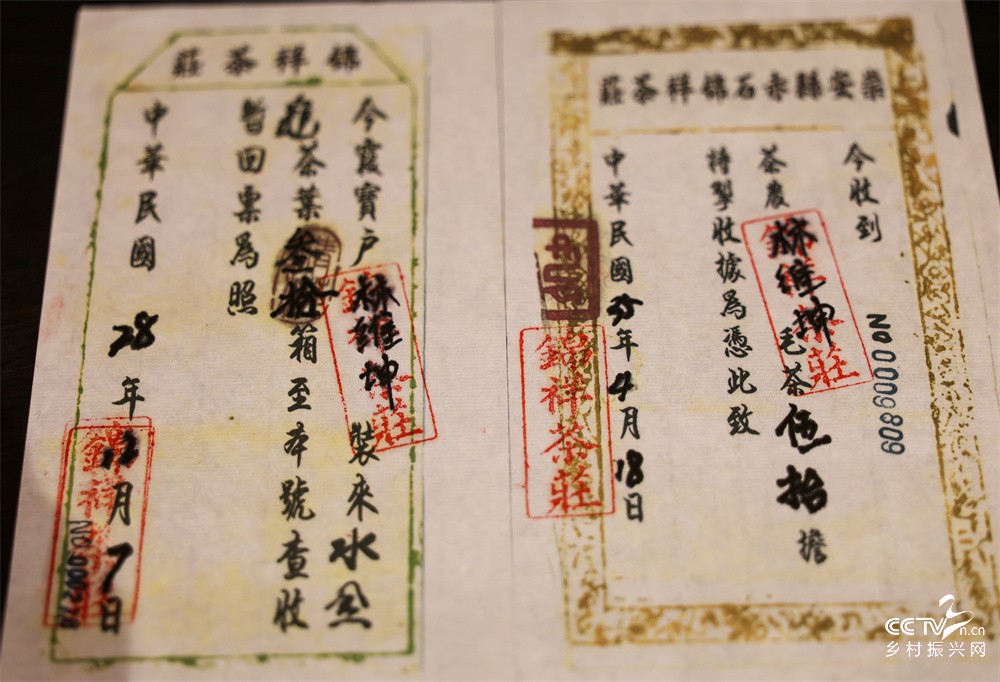 崇安縣赤石錦祥茶莊
今收到
No 0009809
茶農林維坤毛茶伍拾擔
錦祥茶莊
特掣收據為憑此致
中華民國年4月18日
錦祥茶莊
錦祥茶莊
今霞寶戶林維坤裝來水金
錦祥茶莊
龟茶葉叁拾箱至本號查收
暫回票為照
中華民國28年12月7日
錦祥茶莊
CCTV三n.cn
乡村振兴网